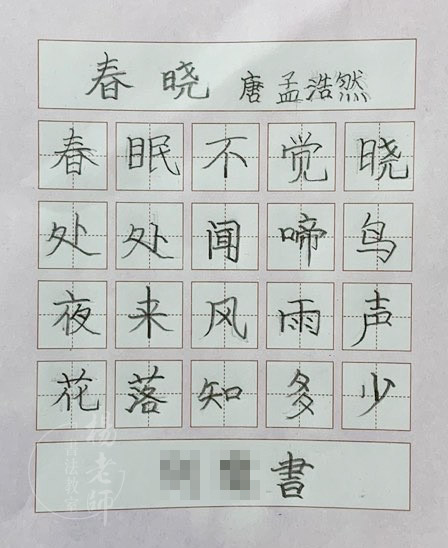 春晓 唐 孟浩然
春眠不觉晓
处处闻啼鸟
夜来风雨声
花落知多少
書
楊老師
書法教室